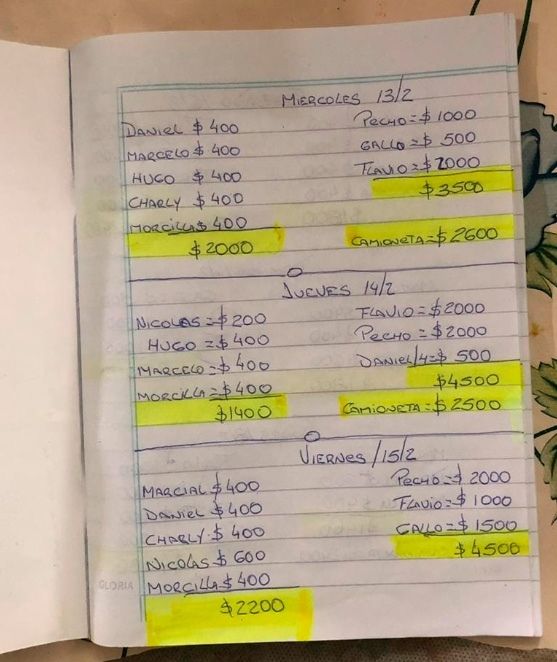 MIERCOLES 13/2
DANIEL $ 400
MARCELO $ 400
HUGO $ 400
CHARLY $ 400
MORCILLA $ 400
$2000
PECHO = $ 1000
GALLO = $ 500
FLAVIO = $ 2000
$3500
CAMIONETA = $ 2600
JUEVES 14/2
NICOLAS = $ 200
HUGO = $ 400
MARCELO = $ 400
MORCILLA = $ 400
$1400
FLAVIO = $ 2000
PECHO = $ 2000
DANIEL/4 = $ 500
$4500
CAMIONETA = $ 2500
VIERNES /15/2
MARCIAL $ 400
DANIEL $ 400
CHARLY $ 400
NICOLAS $ 600
MORCILLA $ 400
$2200
PECHO = $ 2000
FLAVIO = $ 1000
GALLO = $ 1500
$4500
GLORIA